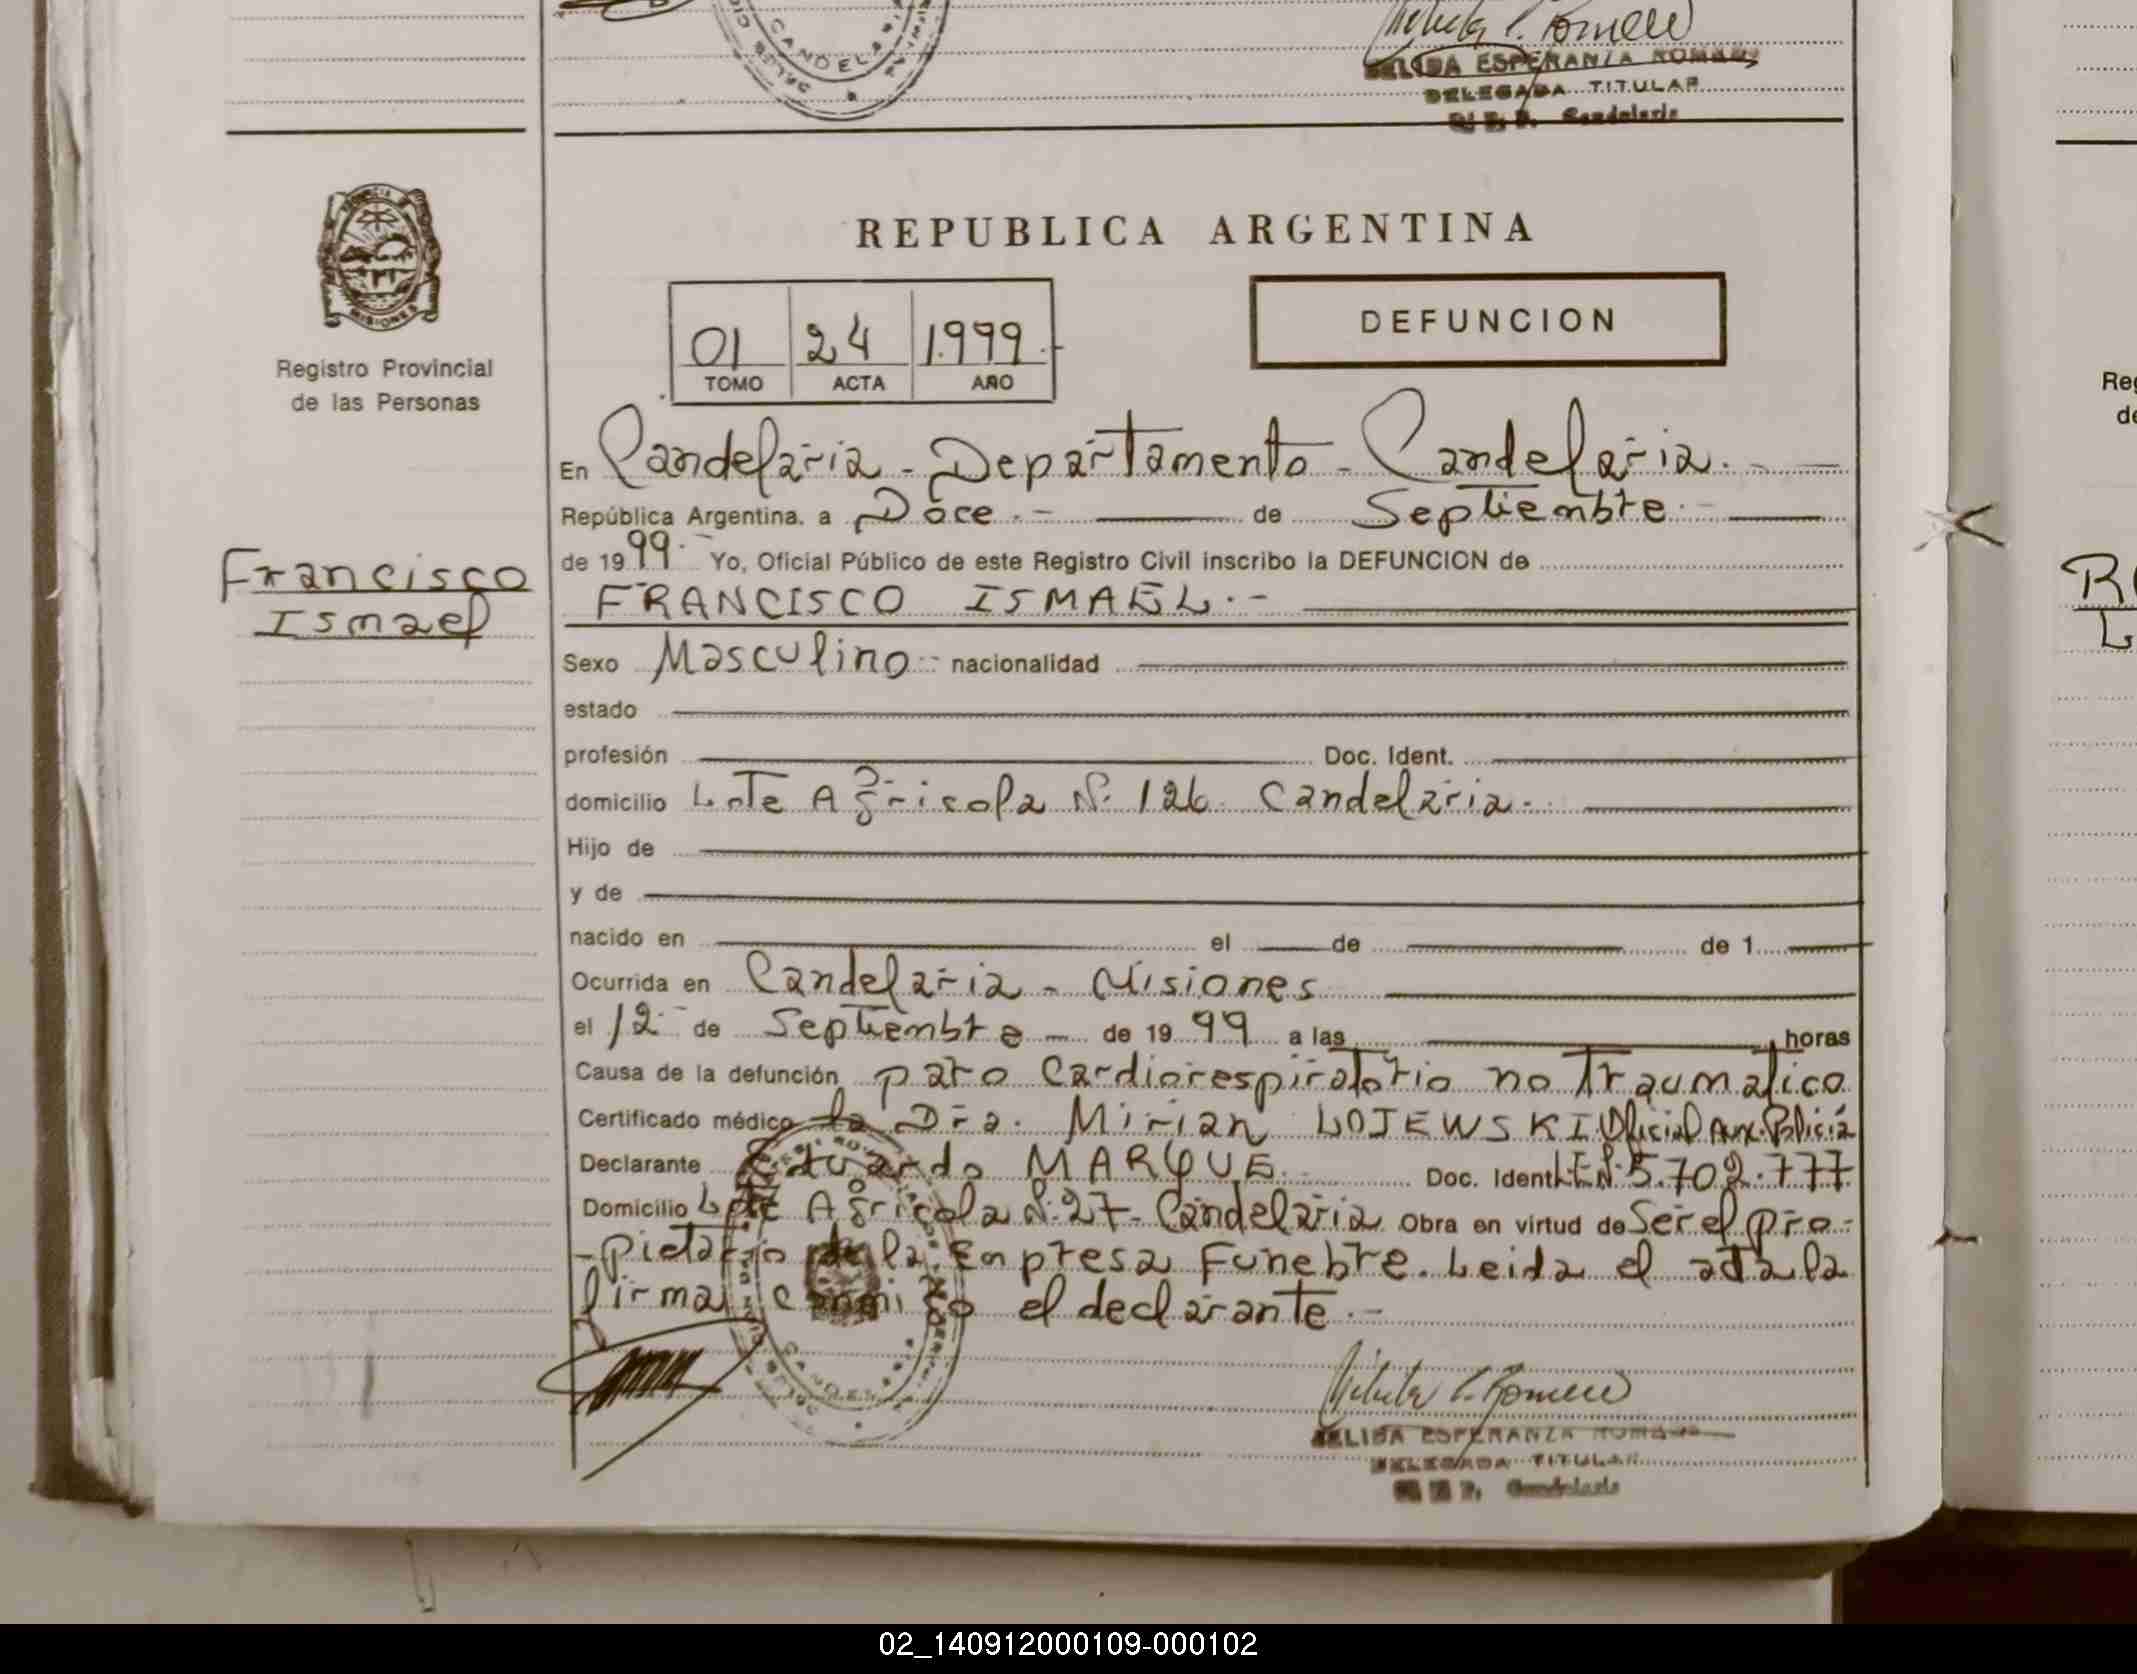 CANDELA
ESPERANZA ROMERO
DELEGADA TITULAR
Candelaria
REPUBLICA ARGENTINA
MISIONES
Registro Provincial
de las Personas
01 24 1.999.-
TOMO ACTA AÑO
DEFUNCION
En Candelaria - Departamento - Candelaria. -
República Argentina, a Doce.- de Septiembre.-
de 1999.- Yo, Oficial Público de este Registro Civil inscribo la DEFUNCION de
FRANCISCO ISMAEL.-
Francisco
Ismael
Sexo Masculino.- nacionalidad
estado
profesión Doc. Ident.
domicilio Lote Agricola Nº 126. Candelaria.
Hijo de
y de
nacido en el de de 1
Ocurrida en Candelaria - Misiones
el 12- de Septiembre - de 1999 a las horas
Causa de la defunción paro Cardiorespiratorio no Traumatico
Certificado médico la Dra. Mirian LOJEWSKI Oficial Aux. Policia
Declarante Eduardo MARQUE Doc. Ident LE Nº 5.702.777
Domicilio Lote Agricola Nº 27- Candelaria Obra en virtud de Ser el pro-
-pietario de la Empresa Funebre. Leida el acta la
firma conmigo el declarante.-
ESPERANZA ROMERO
DELEGADA TITULAR
Candelaria
02_140912000109-000102